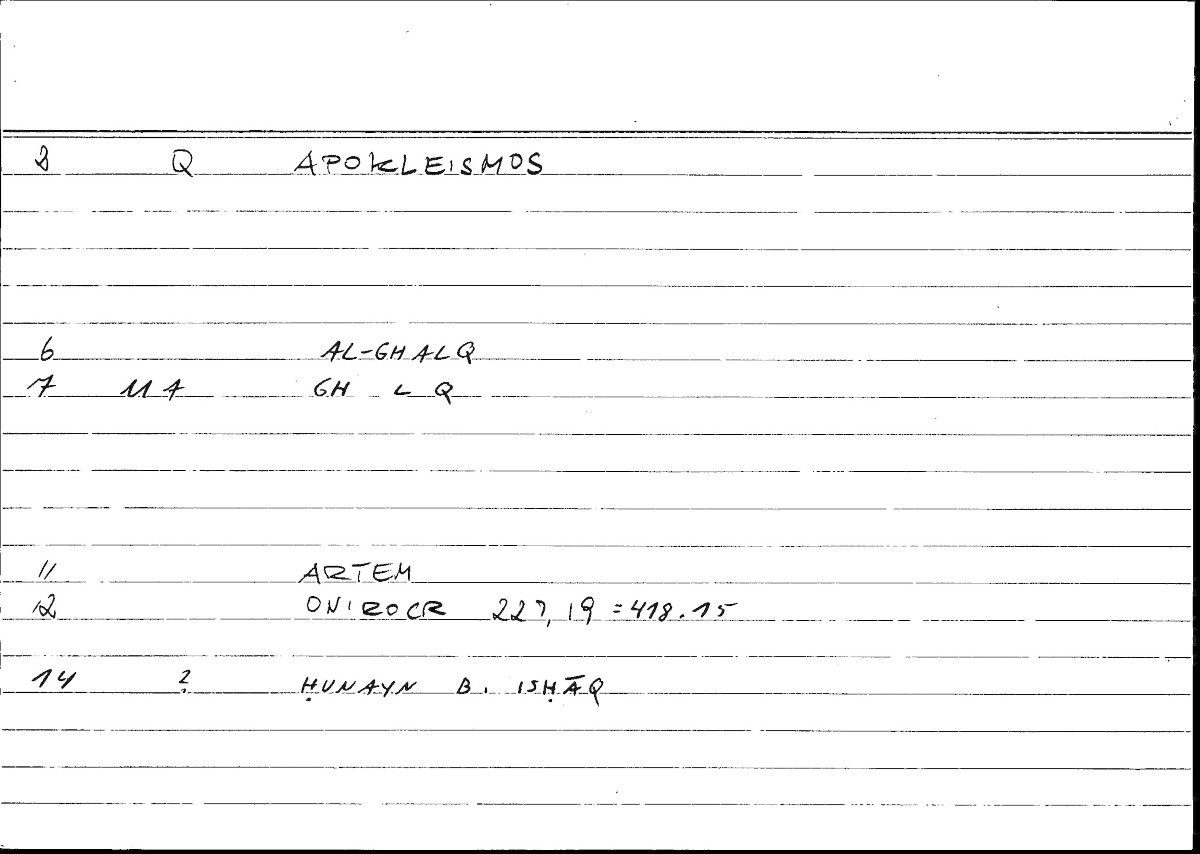 2 Q APOKLEISMOS
6 AL-GHALQ
7 11 1 GH L Q
11 ARTEM
12 ONIROCR 227,19 = 418.15
14 ? ḤUNAYN B. ISḤĀQ